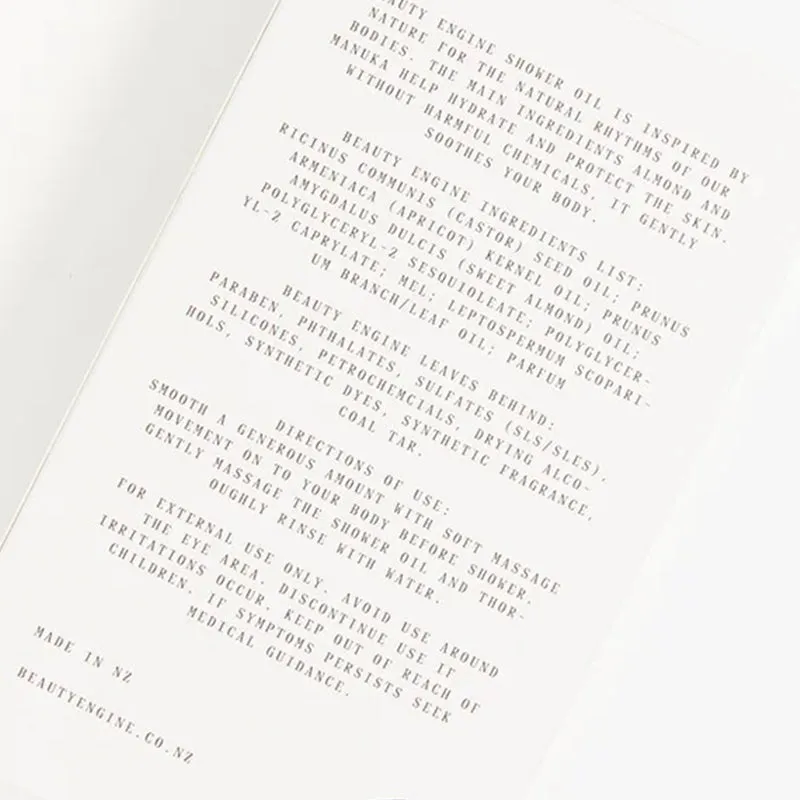 BEAUTY ENGINE SHOWER OIL IS INSPIRED BY
NATURE FOR THE NATURAL RHYTHMS OF OUR
BODIES. THE MAIN INGREDIENTS ALMOND AND
MANUKA HELP HYDRATE AND PROTECT THE SKIN.
WITHOUT HARMFUL CHEMICALS, IT GENTLY
SOOTHES YOUR BODY.
BEAUTY ENGINE INGREDIENTS LIST:
RICINUS COMMUNIS (CASTOR) SEED OIL; PRUNUS
ARMENIACA (APRICOT) KERNEL OIL; PRUNUS
AMYGDALUS DULCIS (SWEET ALMOND) OIL;
POLYGLYCERYL-2 SESQUIOLEATE; POLYGLYCER-
YL-2 CAPRYLATE; MEL; LEPTOSPERMUM SCOPARI-
UM BRANCH/LEAF OIL; PARFUM
BEAUTY ENGINE LEAVES BEHIND:
PARABEN, PHTHALATES, SULFATES (SLS/SLES),
SILICONES, PETROCHEMCIALS, DRYING ALCO-
HOLS, SYNTHETIC DYES, SYNTHETIC FRAGRANCE,
COAL TAR.
DIRECTIONS OF USE:
SMOOTH A GENEROUS AMOUNT WITH SOFT MASSAGE
MOVEMENT ON TO YOUR BODY BEFORE SHOWER.
GENTLY MASSAGE THE SHOWER OIL AND THOR-
OUGHLY RINSE WITH WATER.
FOR EXTERNAL USE ONLY. AVOID USE AROUND
THE EYE AREA. DISCONTINUE USE IF
IRRITATIONS OCCUR. KEEP OUT OF REACH OF
CHILDREN. IF SYMPTOMS PERSISTS SEEK
MEDICAL GUIDANCE.
MADE IN NZ
BEAUTYENGINE.CO.NZ